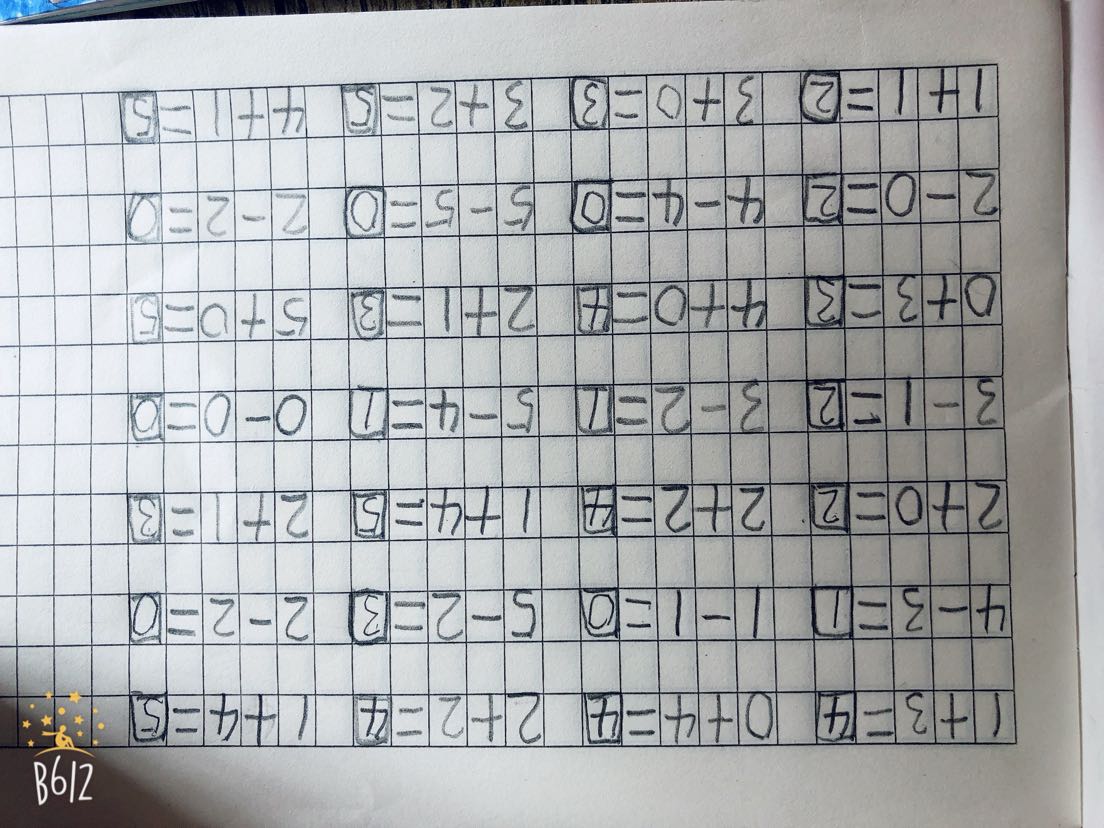 1+3=4 0+4=4 2+2=4 1+4=5
4-3=1 1-1=0 5-2=3 2-2=0
2+0=2 2+2=4 1+4=5 2+1=3
3-1=2 3-2=1 5-4=1 0-0=0
0+3=3 4+0=4 2+1=3 5+0=5
2-0=2 4-4=0 5-5=0 2-2=0
1+1=2 3+0=3 3+2=5 4+1=5
B612